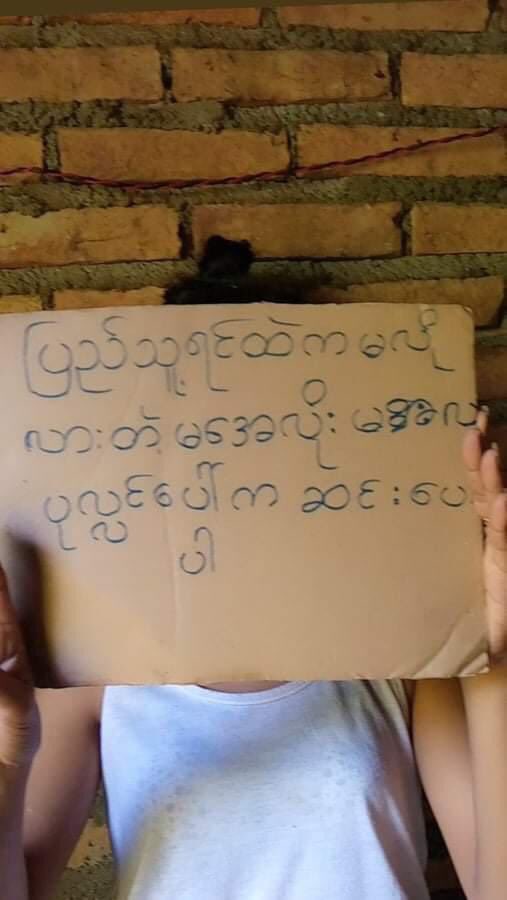 ပြည်သူ့ရင်ထဲက မလို
လားတဲ့ မအေလိုး မအလ
ပုလ္လင်ပေါ်က ဆင်းပေး
ပါ